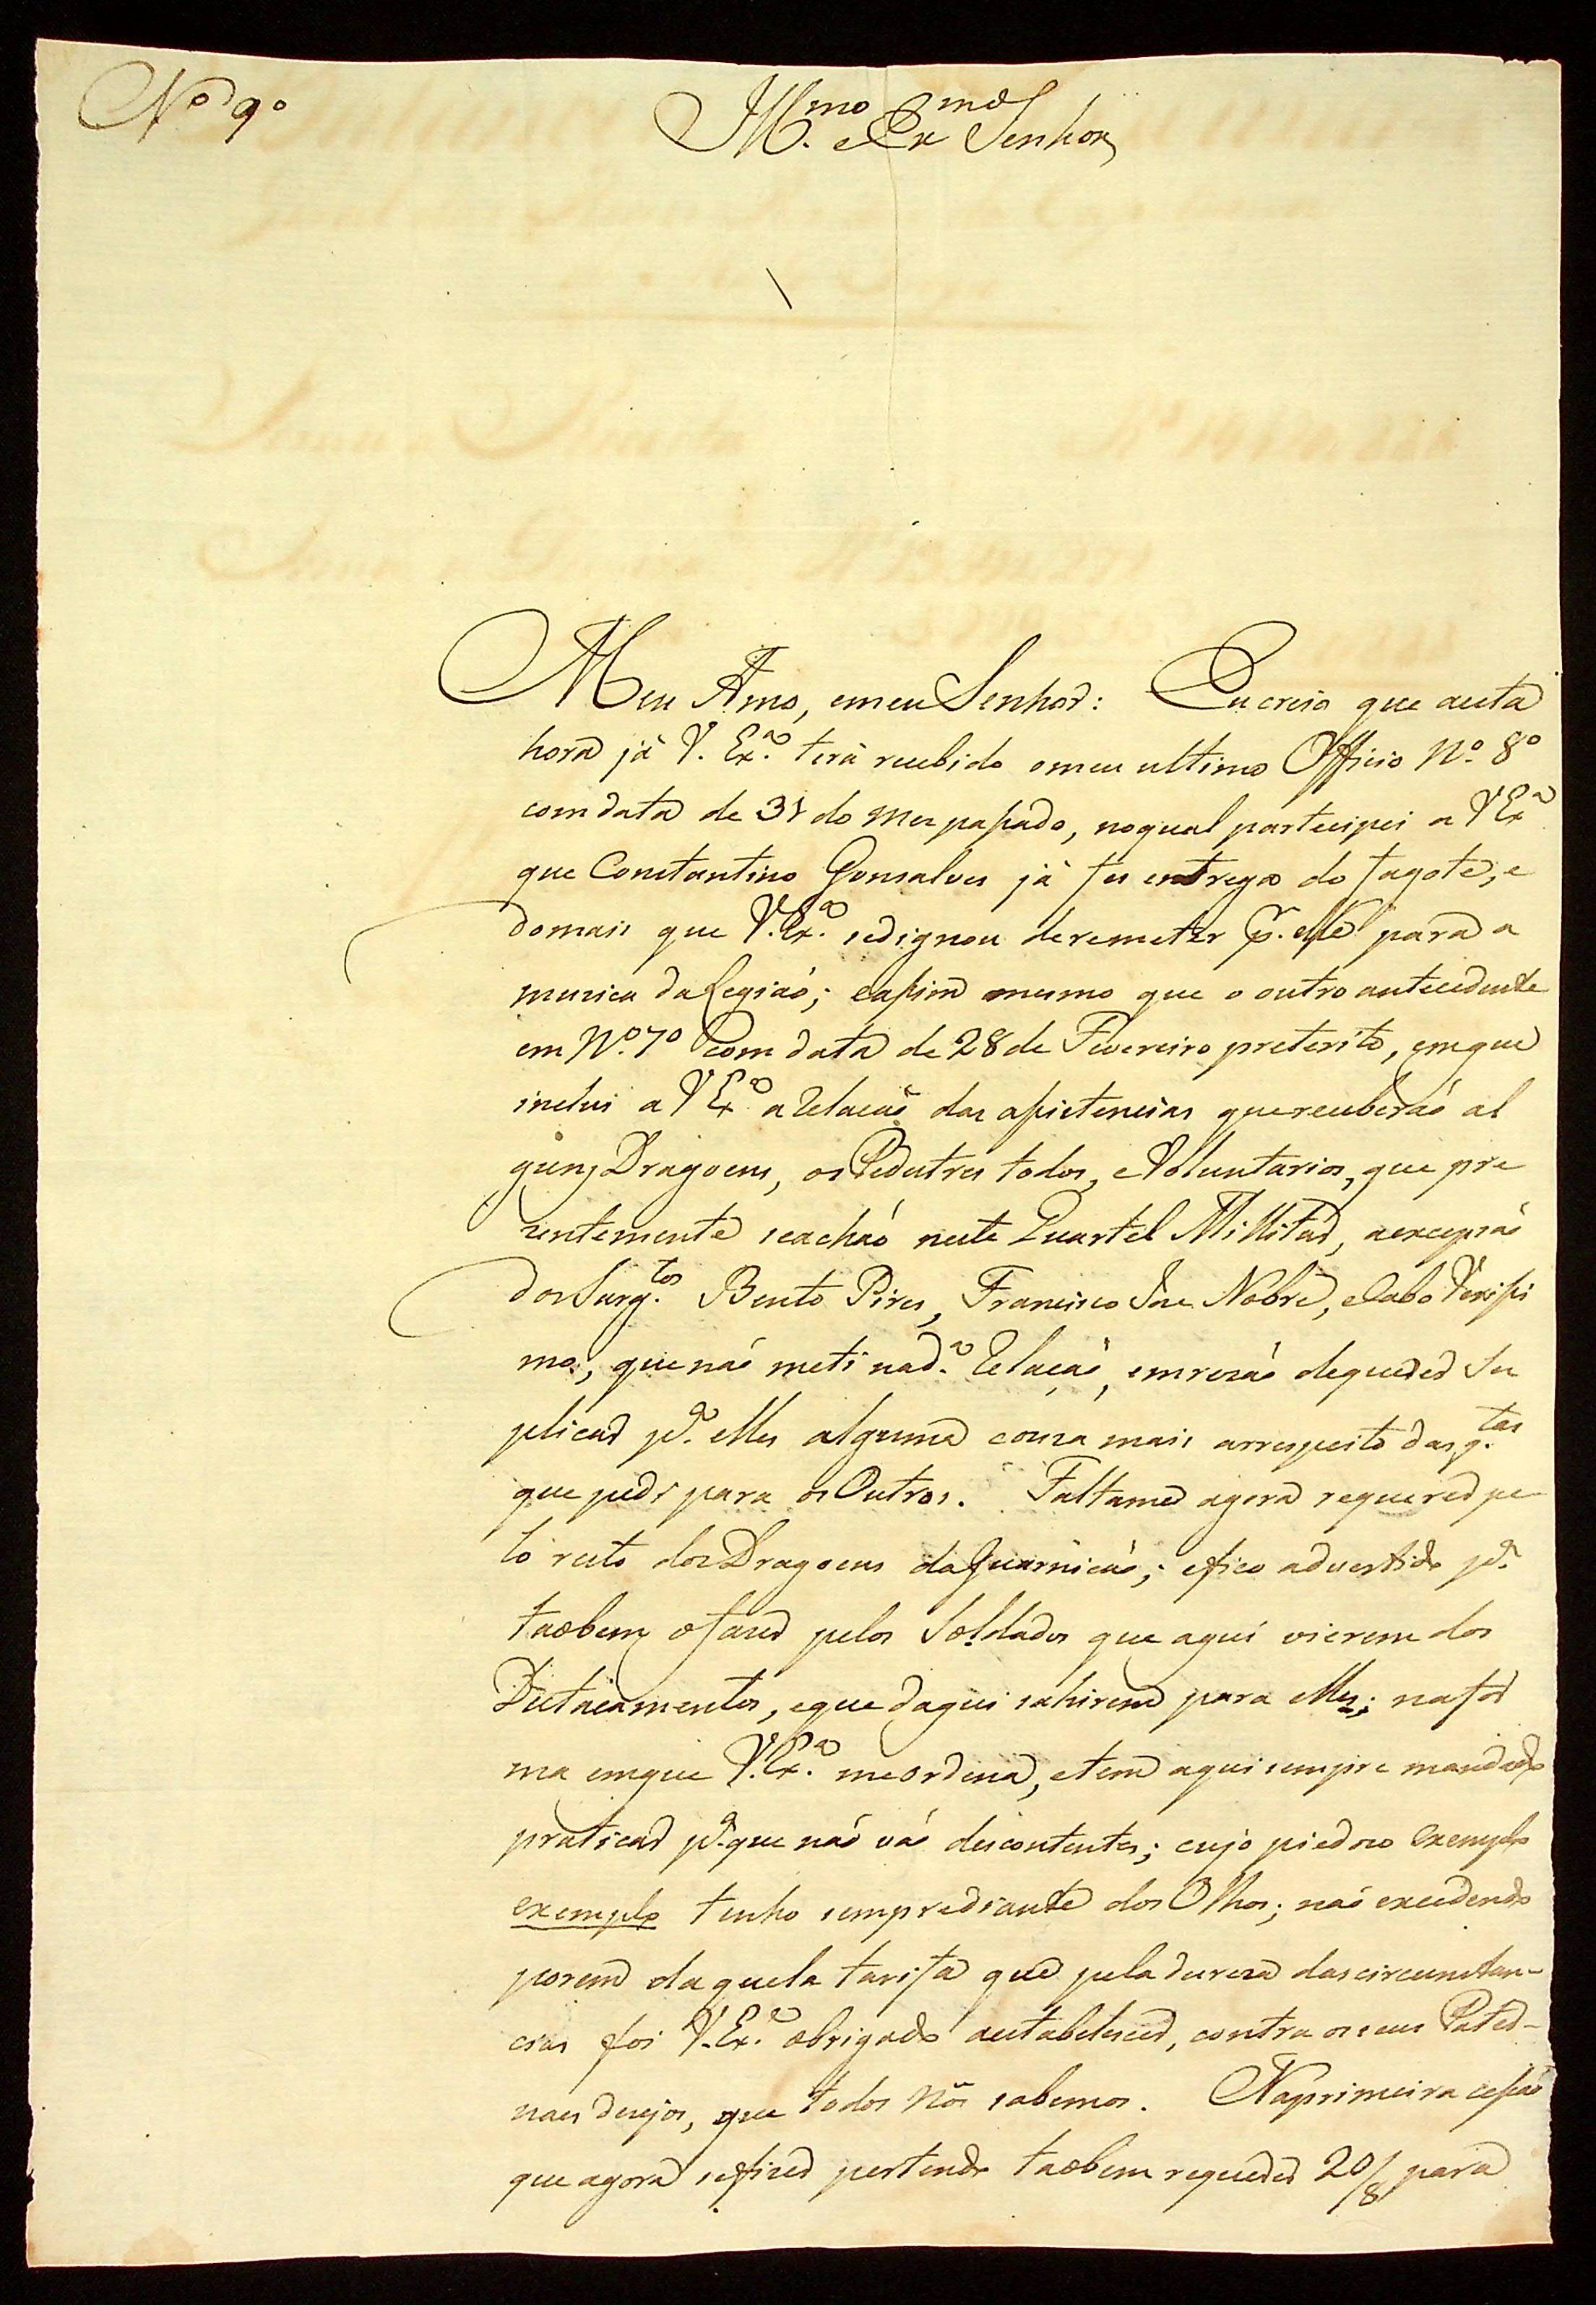 Nº 9º
Ill.mo e Ex.mo Senhor
Meu Amo, emeu Senhor: Eu creio que aesta
hora já V. Ex.ª terá recebido omeu ultimo Officio Nº 8º
comdata de 31 do mes passado, noqual partecipei a V Ex.ª
que Constantino Gonsalves já fes entrega do fagote, e
domais que V. Ex.ª sedignou deremeter p.r elle para a
muzica da Legiaõ; eassim mesmo que o outro antecedente
em Nº 7º com data de 28 de Fevereiro preterito, emque
inclui a V Ex.ª a Relacaõ das assistencias quereceberaõ al
guns Dragoens, os Pedestres todos, e Voluntarios, que pre
zentemente seachaõ neste Quartel Millitar, aexcepsaõ
dos Sarg.tos Bento Pires, Francisco Joze Nobre, eCabo Verissi
mo, que naõ meti nad.ª Relaçaõ, emrezaõ dequerer Su
plicar p.ª elles alguma couza mais arrespeito das q.tas
que pedi para os Outros. Faltame agora requerer pe
lo resto dos Dragoens da Guarnicaõ; efico advertido p.ª
taobem ofazer pelos Soldados que aqui vierem dos
Destacamentos, eque daqui sahirem para elles; nafor
ma emque V. Ex.ª meordena, etem aqui sempre mandado
praticar p.ª que naõ vaõ descontentes; cujo piedozo exemplo
exemplo tenho semprediante dos Olhos; naõ excedendo
porem daquela tarifa que peladureza dascircunstan-
cias foi V. Ex.ª obrigado aestabelescer, contra osseus Pater-
naes dezejos, que todos nós sabemos. Naprimeira cessaõ
que agora sefizer pertendo taobem requerer 20/8 para